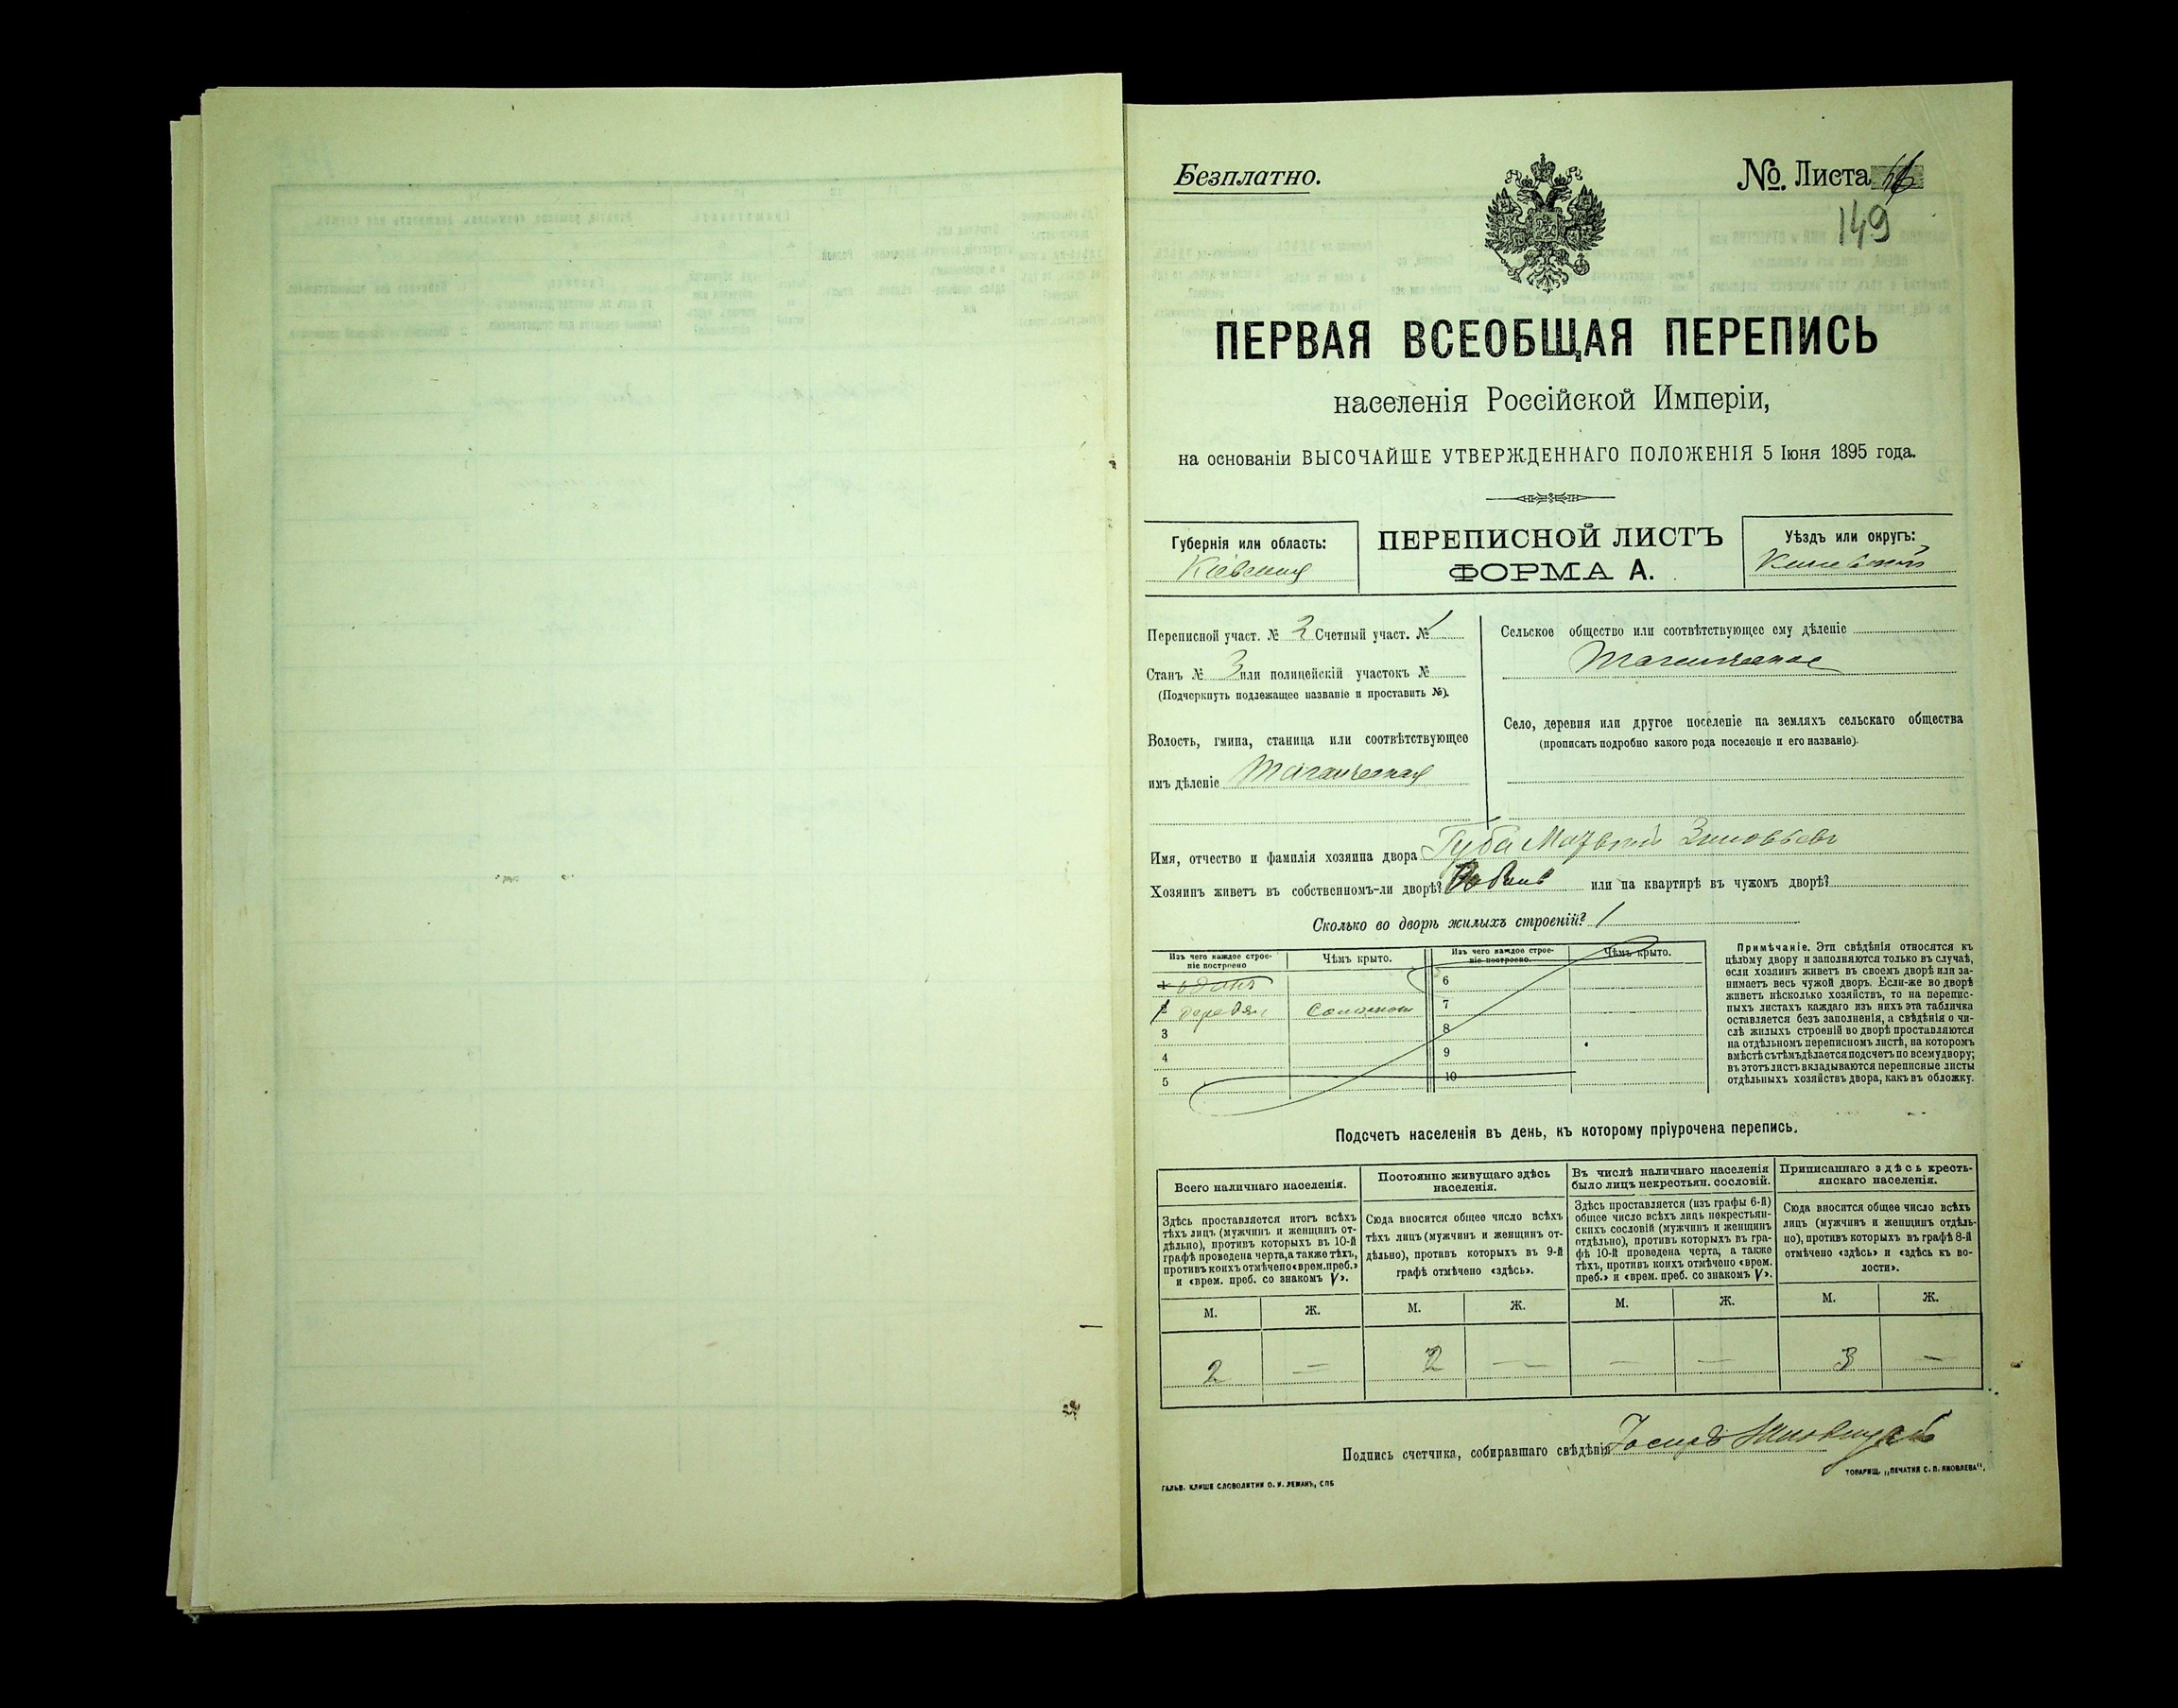 Безплатно.
№. Листа
149
ПЕРВАЯ ВСЕОБЩАЯ ПЕРЕПИСЬ
населенія Россійской Имперіи,
на основаніи ВЫСОЧАЙШЕ УТВЕРЖДЕННАГО ПОЛОЖЕНІЯ 5 Іюня 1895 года.
Губернія или область:
Кіевская
ПЕРЕПИСНОЙ ЛИСТЪ
ФОРМА А.
Уѣздъ или округъ:
Переписной участ. № 2 Счетный участ. № 1
Станъ № 3 или полицейскій участокъ №
(Подчеркнуть подлежащее названіе и проставить №).
Волость, гмина, станица или соотвѣтствующее
имъ дѣленіе
Сельское общество или соотвѣтствующее ему дѣленіе
Село, деревня или другое поселеніе на земляхъ сельскаго общества
(прописать подробно какого рода поселеніе и его названіе).
Имя, отчество и фамилія хозяина двора Губа Зиновьевъ
Хозяинъ живетъ въ собственномъ-ли дворѣ? или на квартирѣ въ чужомъ дворѣ?
Сколько во дворѣ жилыхъ строеній? 1
Изъ чего каждое строе-
ніе построено
Чѣмъ крыто.
Изъ чего каждое строе-
ніе построено.
Чѣмъ крыто.
1
6
деревян
7
3
8
4
9
5
10
Примѣчаніе. Эти свѣдѣнія относятся къ
цѣлому двору и заполняются только въ случаѣ,
если хозяинъ живетъ въ своемъ дворѣ или за-
нимаетъ весь чужой дворъ. Если-же во дворѣ
живетъ нѣсколько хозяйствъ, то на перепис-
ныхъ листахъ каждаго изъ нихъ эта табличка
оставляется безъ заполненія, а свѣдѣнія о чи-
слѣ жилыхъ строеній во дворѣ проставляются
на отдѣльномъ переписномъ листѣ, на которомъ
вмѣстѣ съ тѣмъ дѣлается подсчетъ по всему двору;
въ этотъ листъ вкладываются переписные листы
отдѣльныхъ хозяйствъ двора, какъ въ обложку.
Подсчетъ населенія въ день, къ которому пріурочена перепись.
Всего наличнаго населенія.
Здѣсь проставляется итогъ всѣхъ
тѣхъ лицъ (мужчинъ и женщинъ от-
дѣльно), противъ которыхъ въ 10-й
графѣ проведена черта, а также тѣхъ,
противъ коихъ отмѣчено «врем. преб.»
и «врем. преб. со знакомъ V».
Постоянно живущаго здѣсь
населенія.
Сюда вносится общее число всѣхъ
тѣхъ лицъ (мужчинъ и женщинъ от-
дѣльно), противъ которыхъ въ 9-й
графѣ отмѣчено «здѣсь».
Въ числѣ наличнаго населенія
было лицъ некрестьян. сословій.
Здѣсь проставляется (изъ графы 6-й)
общее число всѣхъ лицъ некрестьян-
скихъ сословій (мужчинъ и женщинъ
отдѣльно), противъ которыхъ въ гра-
фѣ 10-й проведена черта, а также
тѣхъ, противъ коихъ отмѣчено «врем.
преб.» и «врем. преб. со знакомъ V».
Приписаннаго здѣсь кресть-
янскаго населенія.
Сюда вносится общее число всѣхъ
лицъ (мужчинъ и женщинъ отдѣль-
но), противъ которыхъ въ графѣ 8-й
отмѣчено «здѣсь» и «здѣсь къ во-
лости».
М. Ж. М. Ж. М. Ж. М. Ж.
2 — 2 — — — 3 —
Подпись счетчика, собиравшаго свѣдѣнія
ГАЛЬВ. КЛИШЕ СЛОВОЛИТНИ О. И. ЛЕМАНЪ, СПБ
ТОВАРИЩ. „ПЕЧАТНЯ С. П. ЯКОВЛЕВА“.